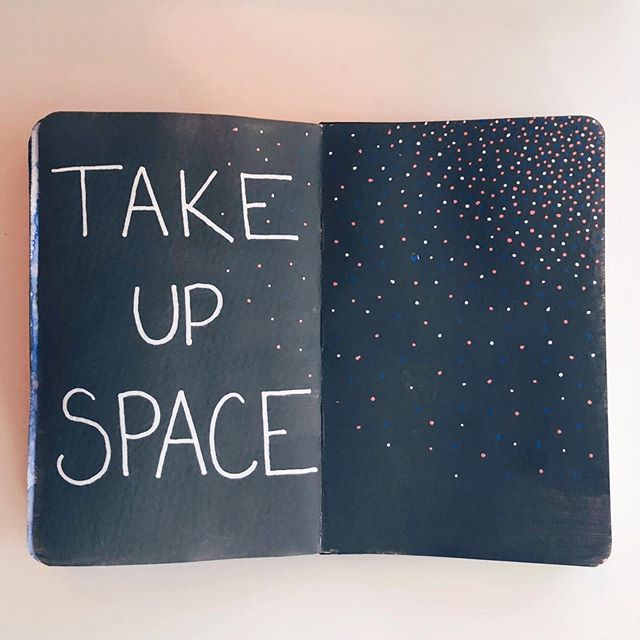 TAKE
UP
SPACE